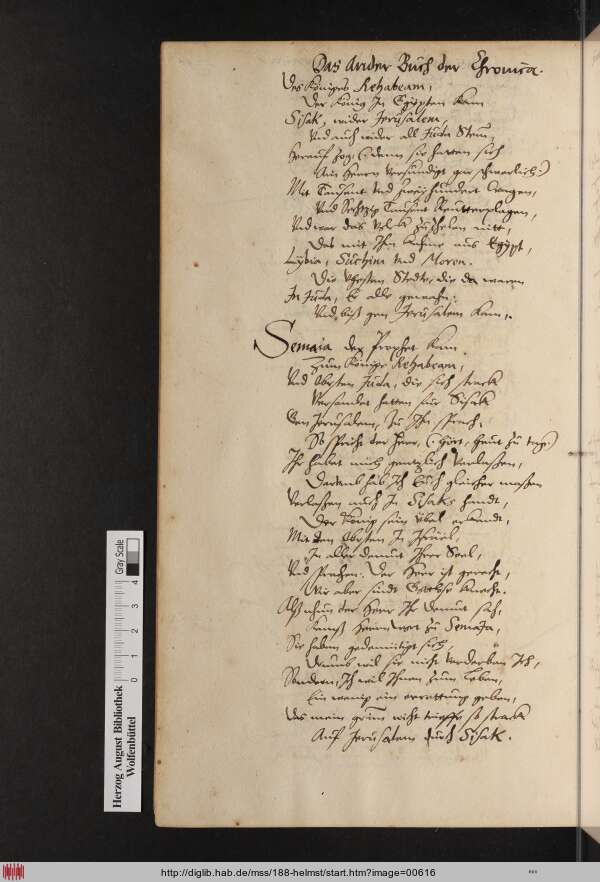 Das Ander Buch der Chronica.
Des Königes Rehabeam,
Der König In Egypten kam
Sisak, wider Jerusalem,
Vnd auch wider all Juda
Herauf zog, (: denn sie hatten sich
Am Herrn versündigt gar schwerlich:)
Mit Tausent vnd zweyhundert Wagen,
Vnd Sechtzig Tausent
Vnd war das Volck zu Zehlen nitt,
Das mit Ihm kahme aus Egypt,
Lybia, Suchim vnd Moren.
Die Vhesten Stedte, die da waren
In Juda, Er alle gewahn,
Vnd biß gen Jerusalem kam.
Semaia der Prophet kam
Zum Könige Rehabeam,
Vnd Obristen Juda, die sich starck
Versamlet hatten für Sisak
Gen Jerusalem, Zu Ihn sprach,
So spricht der Herr, (: hört, heut zu tag:)
Ihr habet mich gentzlich verlaßen,
Darumb hab Ich Euch gleicher maßen
Verlaßen auch In Sisaks handt,
Der König sein Vbel erkandt,
Mit den Obristen In Israel,
In aller demut Ihrer Seel,
Vnd sprachen: Der Herr ist gerecht,
Wir aber sindt
Alß nhun der Herr Ihr demut sich,
Kamß Herrn wort zu Semaja,
Sie haben gedemütigt sich,
Drumb wil sie nicht verderben Ich,
Sondern, Ich wil Ihnen zum Leben,
Ein wenig ein errettung geben,
Das mein grim nicht treuffe so starck
Auf Jerusalem durch Sisak.
Herzog August Bibliothek
Wolfenbüttel
Gray Scale
0 1 2 3 4
http://diglib.hab.de/mss/188-helmst/start.htm?image=00616